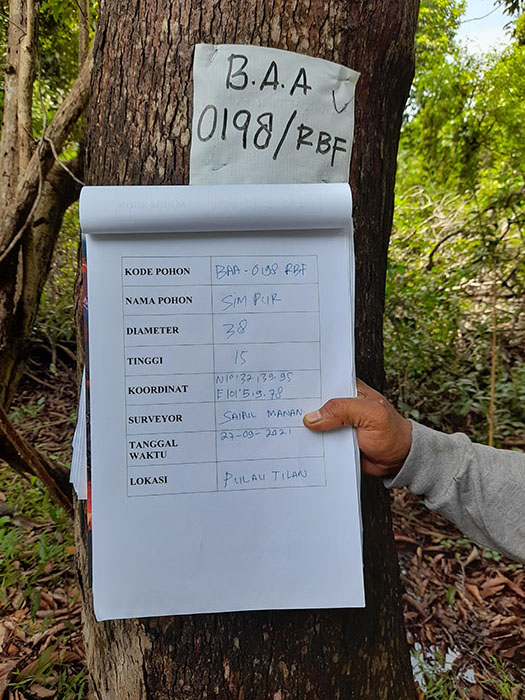 B.A.A
0198/RBF
KODE POHON BAA-0198 RBF
NAMA POHON SIMPUR
DIAMETER 38
TINGGI 15
KOORDINAT N1°32,39.95
E101°5,9.78
SURVEYOR SAIPUL MANAN
TANGGAL 27-09-2021
WAKTU
LOKASI PULAU TILAN